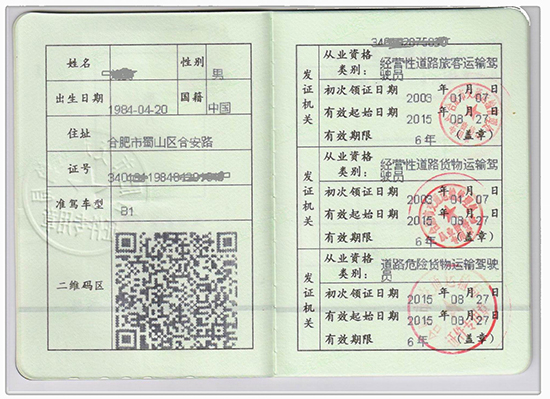 姓名 性别 男
出生日期 1984-04-20 国籍 中国
住址 合肥市蜀山区合安路
证号
准驾车型 B1
二维码区
发证机关
从业资格类别: 经营性道路旅客运输驾驶员
初次领证日期 2003 年 01 月 07 日
有效起始日期 2015 年 08 月 27 日
有效期限 6年 (盖章)
发证机关
从业资格类别: 经营性道路货物运输驾驶员
初次领证日期 2003 年 01 月 07 日
有效起始日期 2015 年 08 月 27 日
有效期限 6年 (盖章)
发证机关
从业资格类别: 道路危险货物运输驾驶员
初次领证日期 2015 年 08 月 27 日
有效起始日期 2015 年 08 月 27 日
有效期限 6年 (盖章)